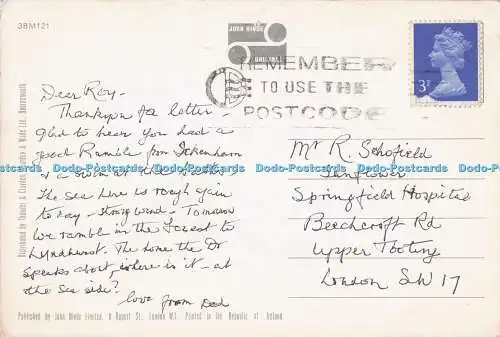 3BM121
JOHN HINDE
ORIGINAL
REMEMBER
TO USE THE
POSTCODE
3P
Dear Roy -
Thankyou for letter -
glad to hear you had a
good Ramble from Ickenham
& a swim at the
The sea here is rough again
to-day - strong wind - Tomorrow
we ramble in the Forest to
Lyndhurst. The home the Dr
speaks about, where is it - at
the sea side?
love from Dad
Mr R. Schofield
Springfield Hospital
Beechcroft Rd
Upper Tooting
London SW17
Distributed by Thunder & Clayden (Successors to Bourne & Wide) Ltd. Bournemouth
Published by John Hinde Limited, 6 Rupert St., London W1. Printed in the Republic of Ireland.
Postcards
www.Postcards
Postcards
www.Postcards